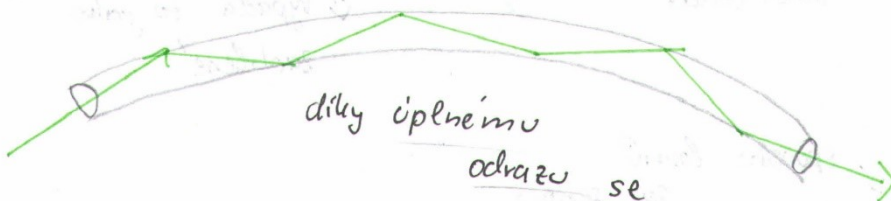 díky úplnému
odrazu se